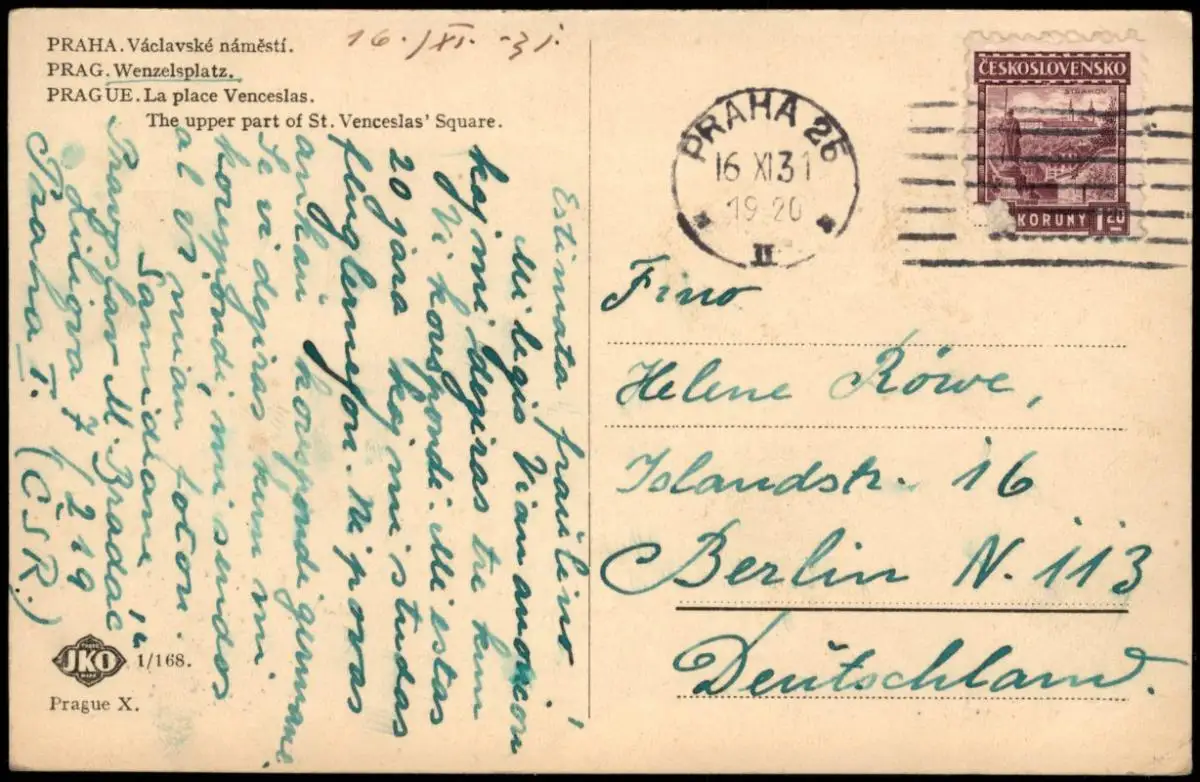 PRAHA. Václavské náměstí.
PRAG. Wenzelsplatz.
PRAGUE. La place Venceslas.
The upper part of St. Venceslas' Square.
16. XI. -31.
Estimata fraŭlino!
Mi legis Vian anoncon
kaj mi deziras tre kun
Vi korespondi. Mi estas
20 jara kaj mi studas
Ni povas
ankaŭ korespondi germane.
Se vi deziras kum mi
korespondi, mi sendos
al vi mian foton.
Samideane
Pravoslav M. Bradáč
Liliova 7/219
Praha I. (ČSR.)
JKO
1/168.
Prague X.
ČESKOSLOVENSKO
STRAHOV
KORUNY 1.20
PRAHA 26
16 XI 31
19-20
II
Fino
Helene Röwe,
Islandstr. 16
Berlin N. 113
Deutschland.